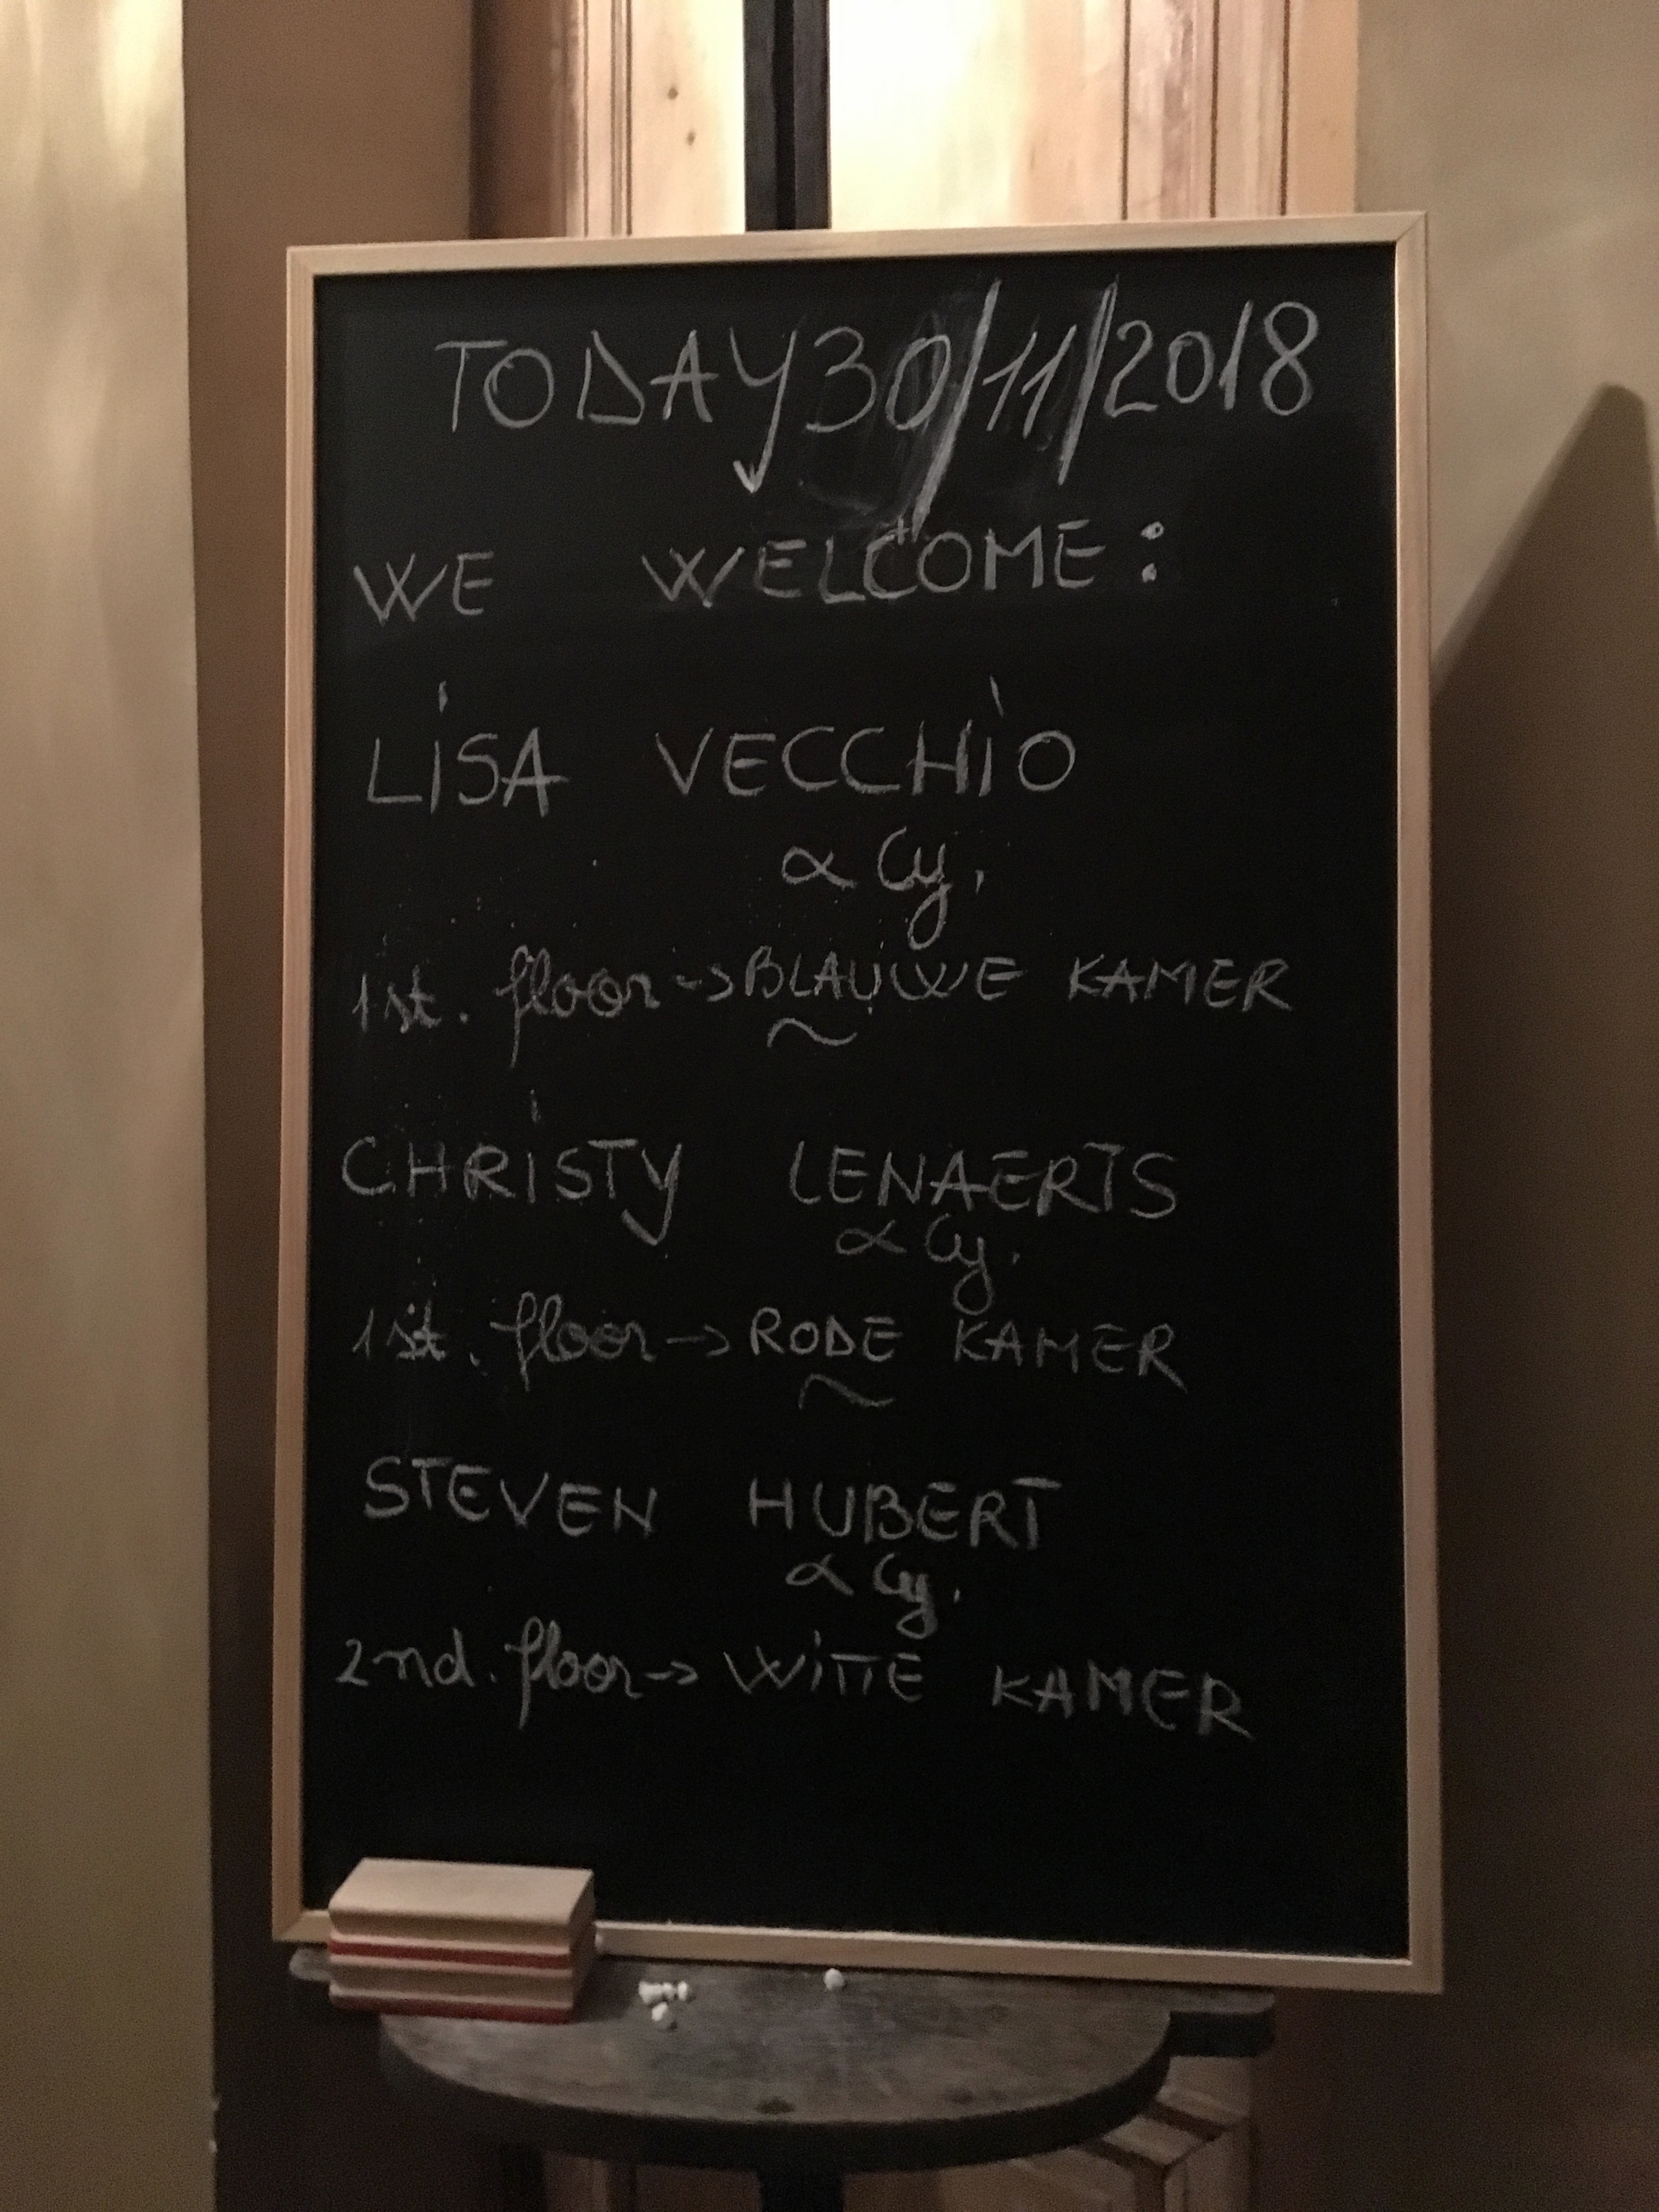 TODAY 30/11/2018
WE WELCOME:
LiSA VECCHiO
& Cy.
1st. floor -> BLAUWE KAMER
~
CHRiSTY LENAERTS
& Cy.
1st. floor -> RODE KAMER
~
STEVEN HUBERT
& Cy.
2nd. floor -> WiTTE KAMER